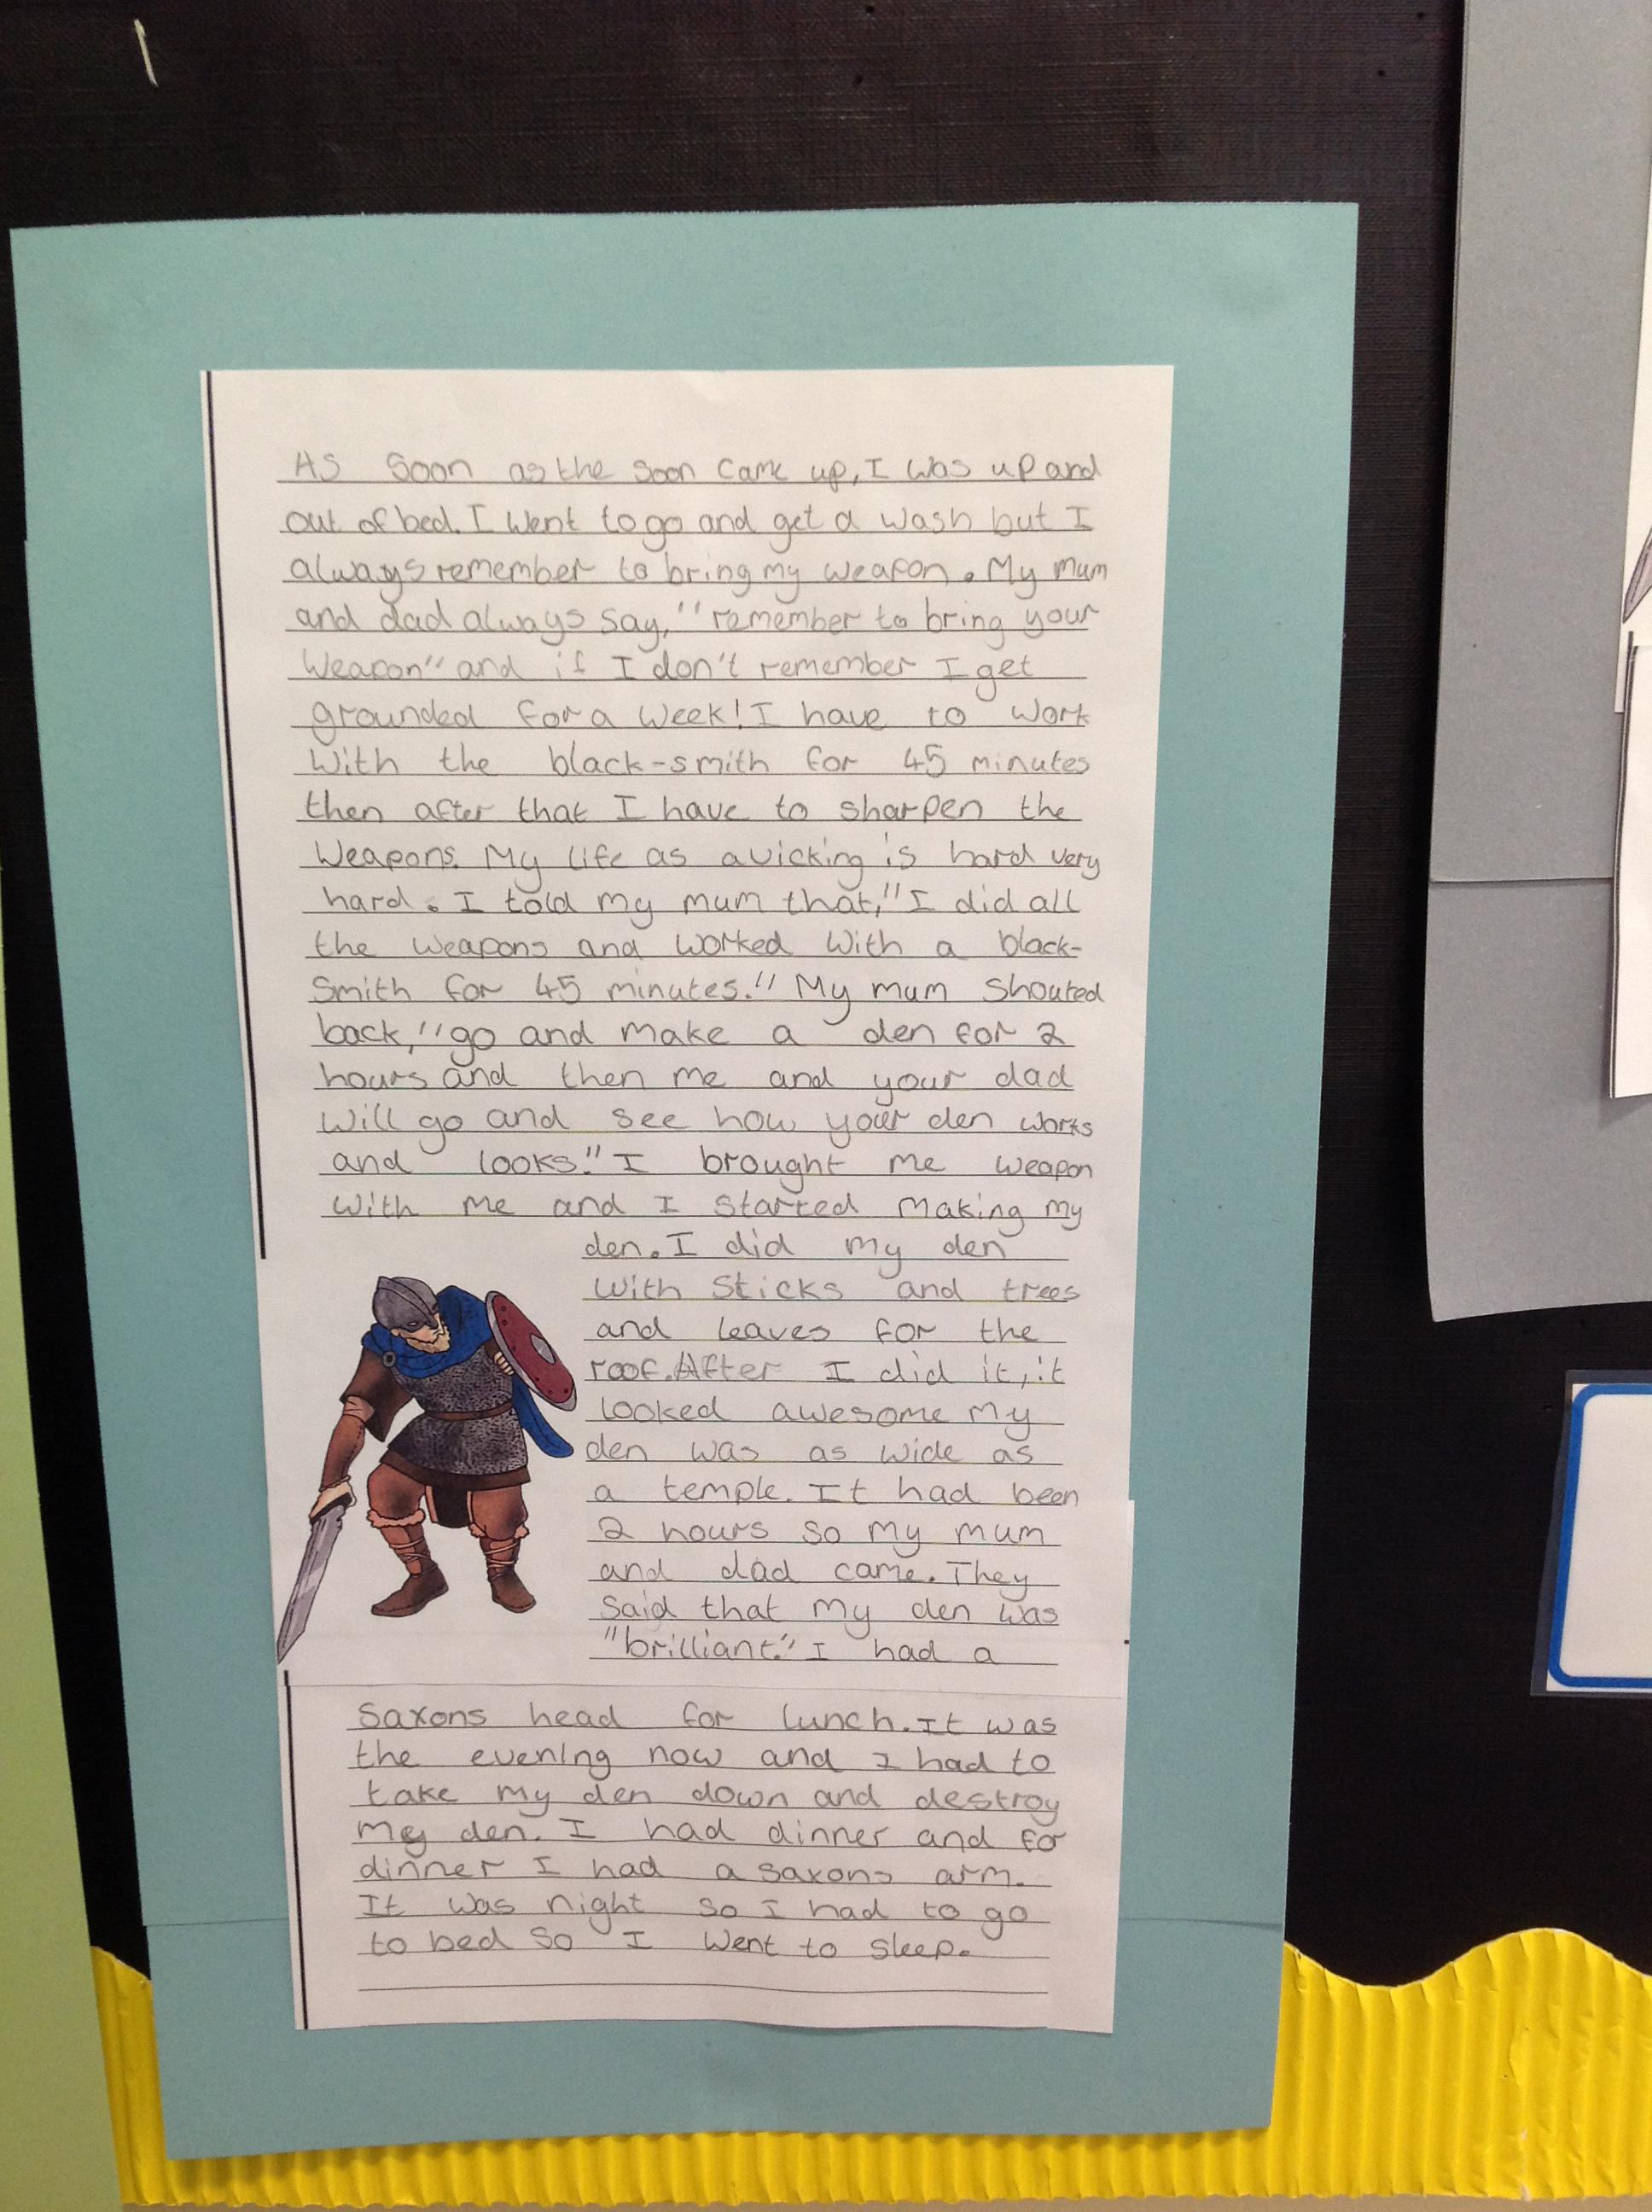 As soon as the soon came up, I was up and
out of bed. I went to go and get a wash but I
always remember to bring my weapon. My mum
and dad always say, "remember to bring your
weapon" and if I don't remember I get
grounded for a week! I have to work
with the black-smith for 45 minutes
then after that I have to sharpen the
weapons. My life as a vicking is hard very
hard. I told my mum that, "I did all
the weapons and worked with a black-
smith for 45 minutes." My mum shouted
back, "go and make a den for 2
hours and then me and your dad
will go and see how your den works
and looks." I brought me weapon
with me and I started making my
den. I did my den
with sticks and trees
and leaves for the
roof. After I did it, it
looked awesome my
den was as wide as
a temple. It had been
2 hours so my mum
and dad came. They
said that my den was
"brilliant." I had a
saxons head for lunch. It was
the evening now and I had to
take my den down and destroy
my den. I had dinner and for
dinner I had a saxons arm.
It was night so I had to go
to bed so I went to sleep.